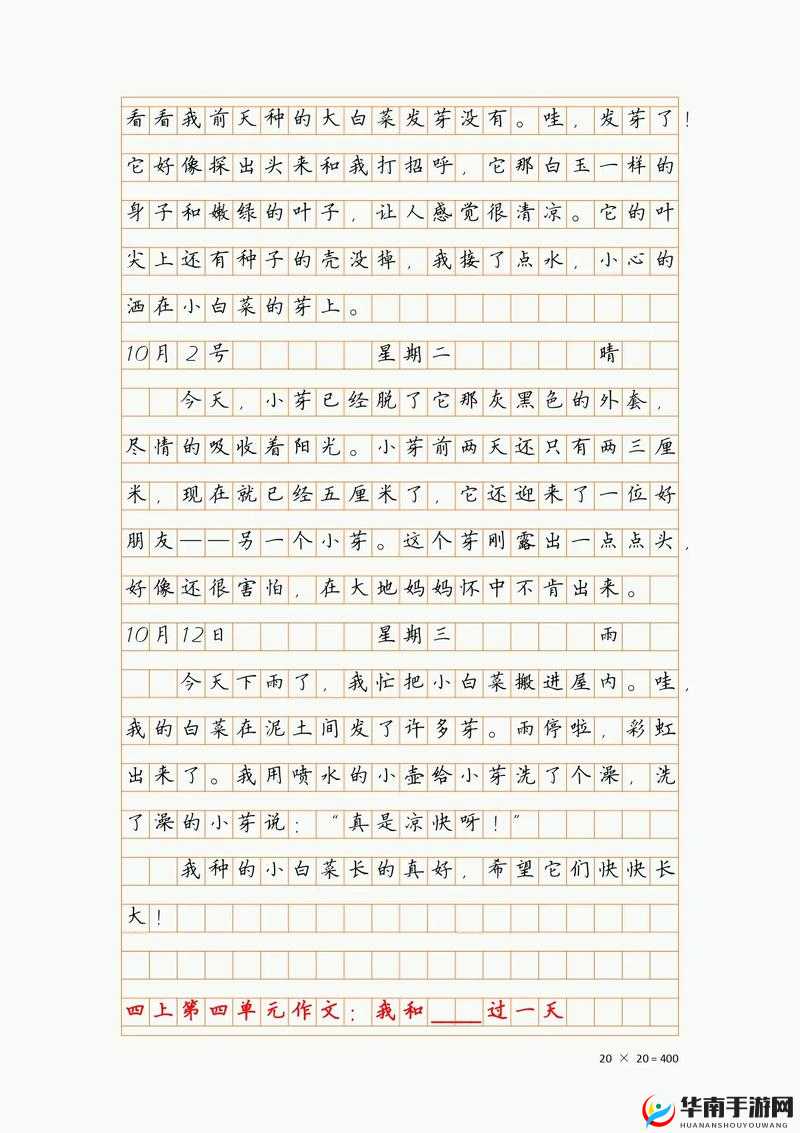 看看我前天种的大白菜发芽没有。哇，发芽了！
它好像探出头来和我打招呼，它那白玉一样的
身子和嫩绿的叶子，让人感觉很清凉。它的叶
尖上还有种子的壳没掉，我接了点水，小心的
洒在小白菜的芽上。
10月2号 星期二 晴
今天，小芽已经脱了它那灰黑色的外套，
尽情的吸收着阳光。小芽前两天还只有两三厘
米，现在就已经五厘米了，它还迎来了一位好
朋友——另一个小芽。这个芽刚露出一点点头，
好像还很害怕，在大地妈妈怀中不肯出来。
10月12日 星期三 雨
今天下雨了，我忙把小白菜搬进屋内。哇，
我的白菜在泥土间发了许多芽。雨停啦，彩虹
出来了。我用喷水的小壶给小芽洗了个澡，洗
了澡的小芽说：“真是凉快呀！”
我种的小白菜长的真好，希望它们快快长
大！
四上第四单元作文：我和____过一天
20 × 20=400
华南手游网
HUANANSHOUYOUWANG